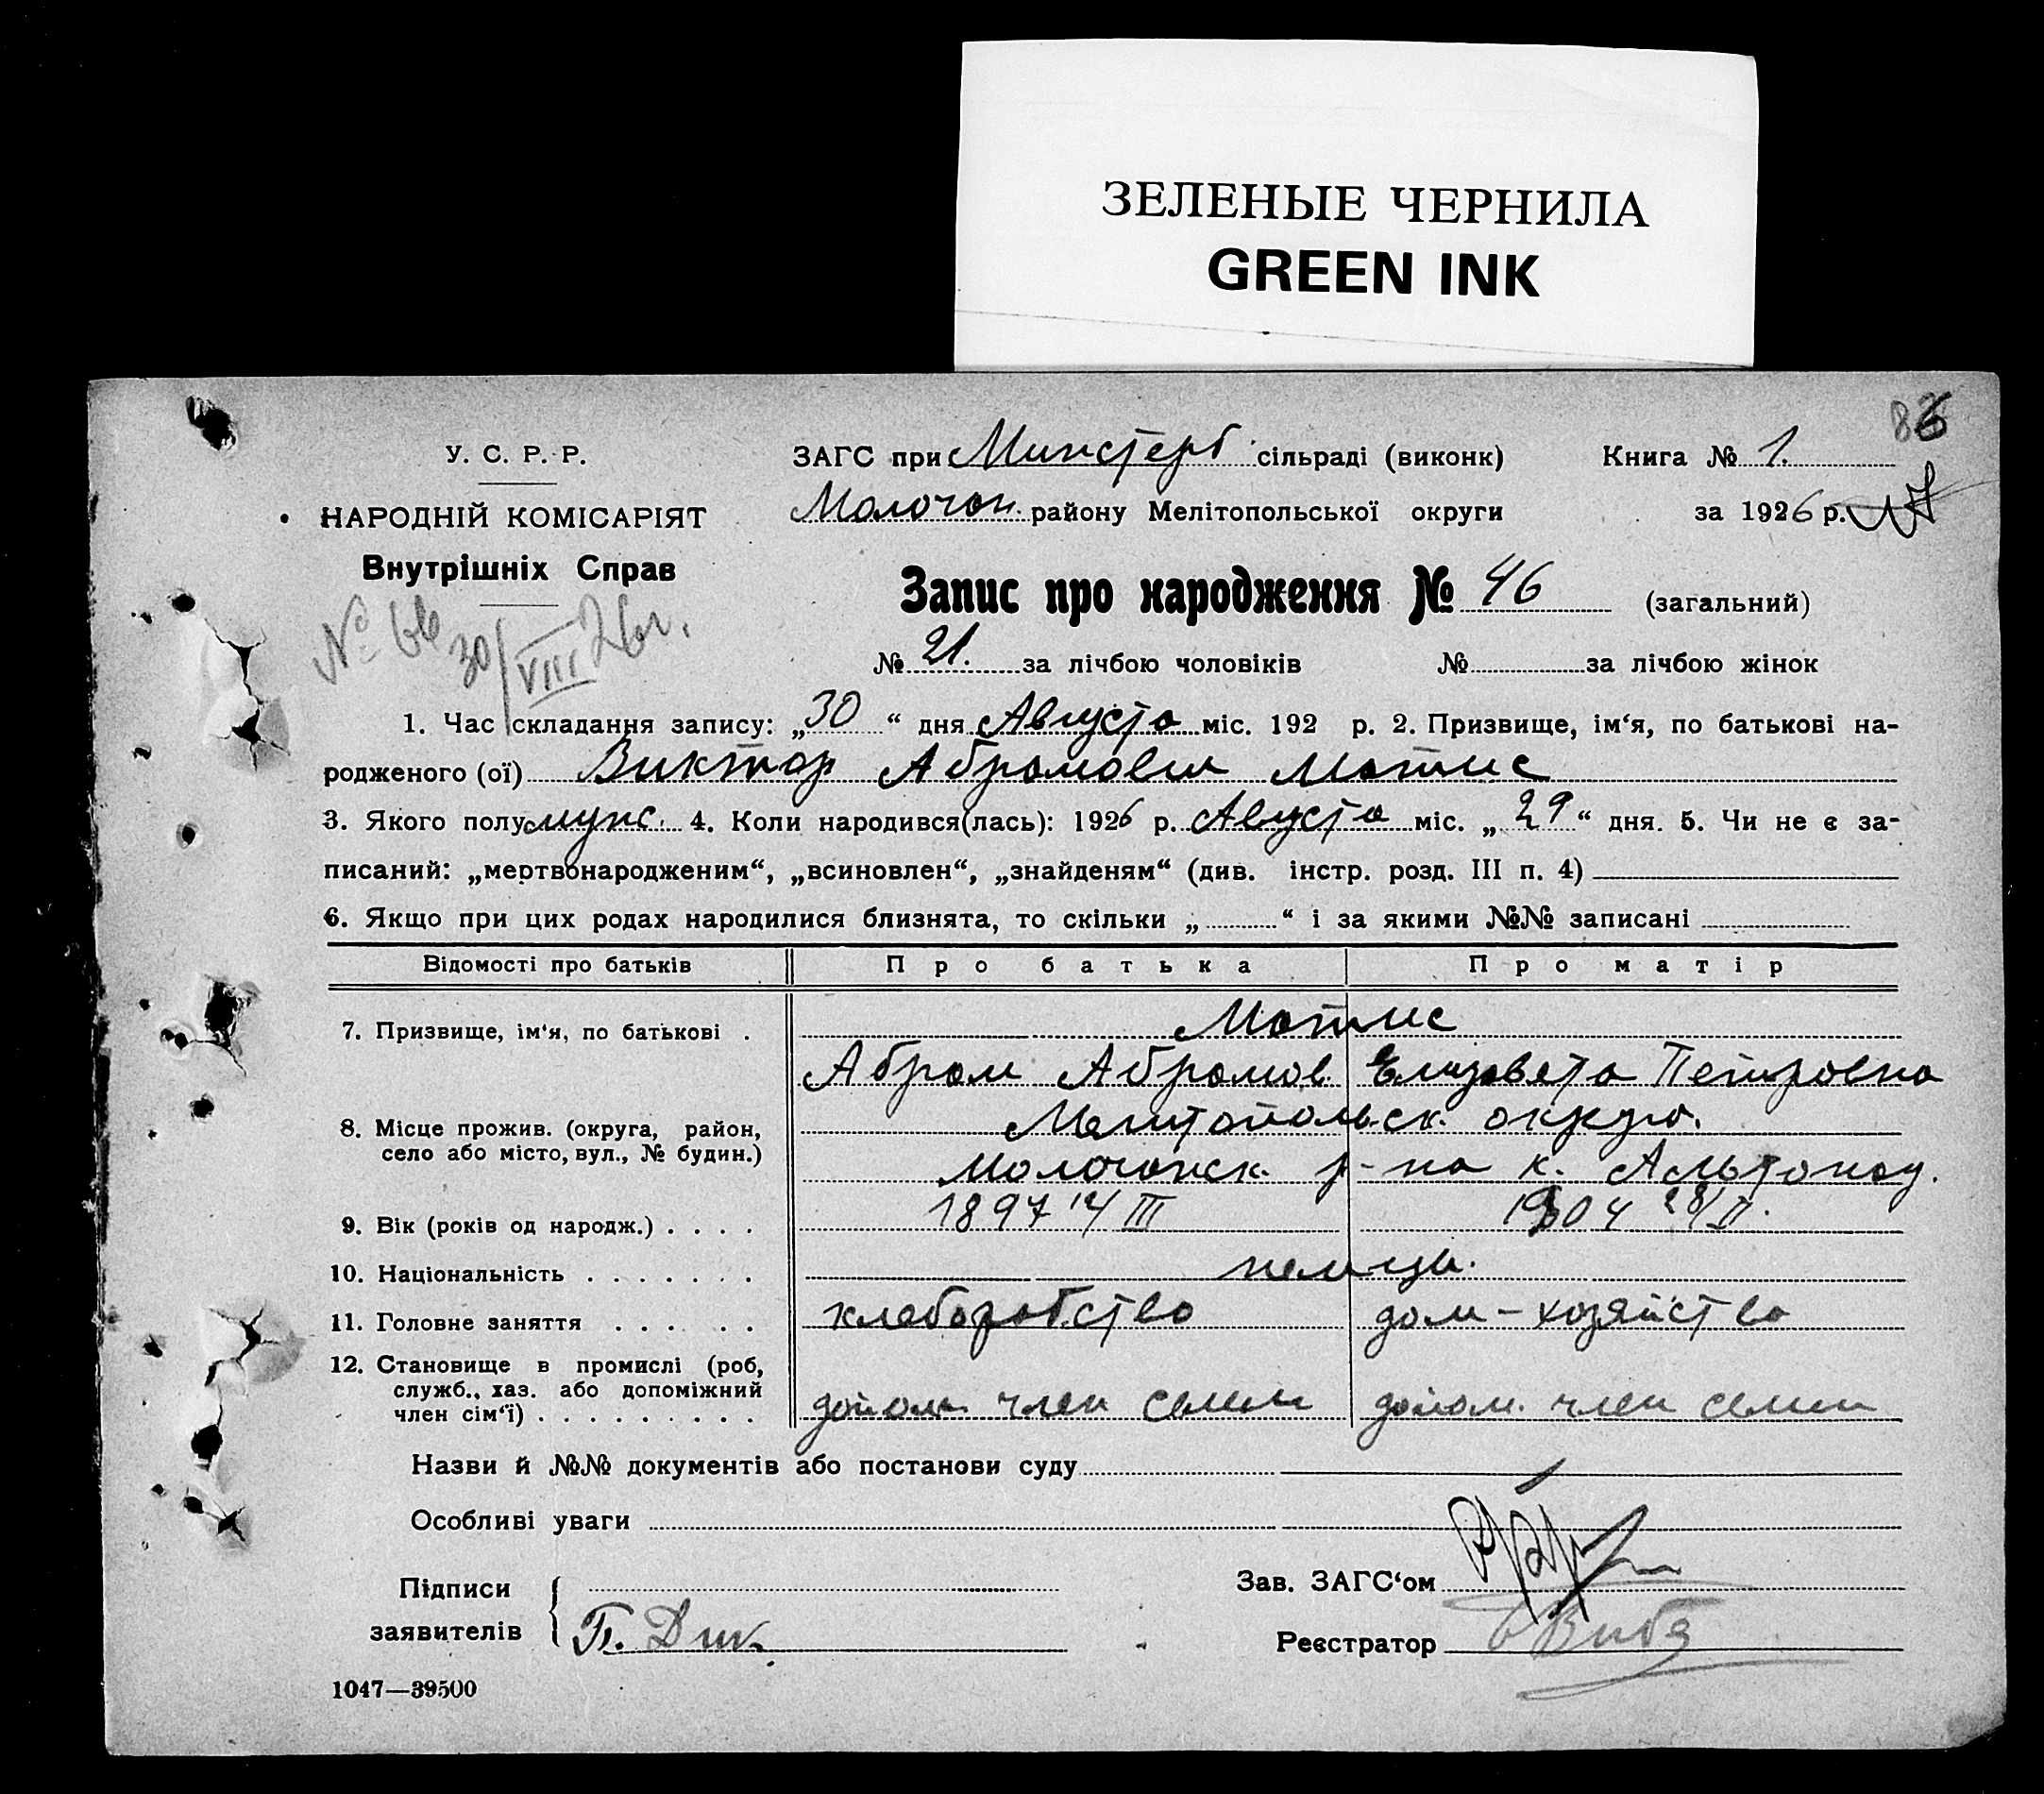 ЗЕЛЕНЫЕ ЧЕРНИЛА
GREEN INK
У. С. Р. Р.
НАРОДНІЙ КОМІСАРІЯТ
Внутрішніх Справ
№ 66 30/VIII 26 г.
ЗАГС при Минстерб. сільраді (виконк)
Молочан. району Мелітопольської округи
Книга № 1.
за 1926 р.
Запис про народження № 46 (загальний)
№ 21. за лічбою чоловіків № за лічбою жінок
1. Час складання запису: „30“ дня Августа міс. 192 р. 2. Призвище, ім‘я, по батькові на-
родженого (ої) Виктор Абрамови Матис
3. Якого полу мужс. 4. Коли народився(лась): 1926 р. Августа міс. „29“ дня. 5. Чи не є за-
писаний: „мертвонародженим“, „всиновлен“, „знайденям“ (див. інстр. розд. III п. 4)
6. Якщо при цих родах народилися близнята, то скільки „ “ і за якими №№ записані
Відомості про батьків Про батька Про матір
7. Призвище, ім‘я, по батькові . Матис
Абрам Абрамов Елизавета Петровна
8. Місце прожив. (округа, район, село або місто, вул., № будин.) Мелитопольск. округа.
Молочанск. р-на к. Альтонау.
9. Вік (років од народж.) . . . . 1897 14/III 1904 28/II.
10. Національність . . . . . . . немцы.
11. Головне заняття . . . . . . хлеборобство дом-хозяйство
12. Становище в промислі (роб,
служб., хаз. або допоміжний
член сім‘ї) . . . . . . . . . допом. член семьи допом. член семьи
Назви й №№ документів або постанови суду
Особливі уваги
Підписи
заявителів П. Дик.
Зав. ЗАГС‘ом
Реєстратор Вибе
1047—39500